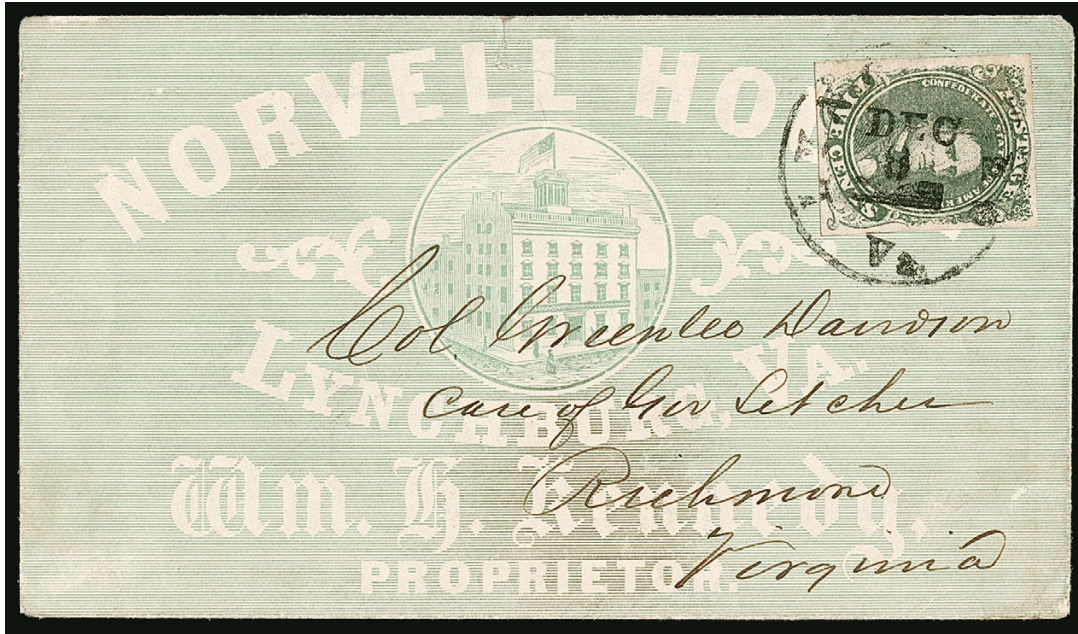 NORVELL HO
LYNCHBURG, VA.
Wm. H. Kennedy,
PROPRIETOR.
CONFEDERATE STATES
POSTAGE
DEC
8
VA
Col. Greenlee Davidson
Care of Gov Letcher
Richmond
Virginia